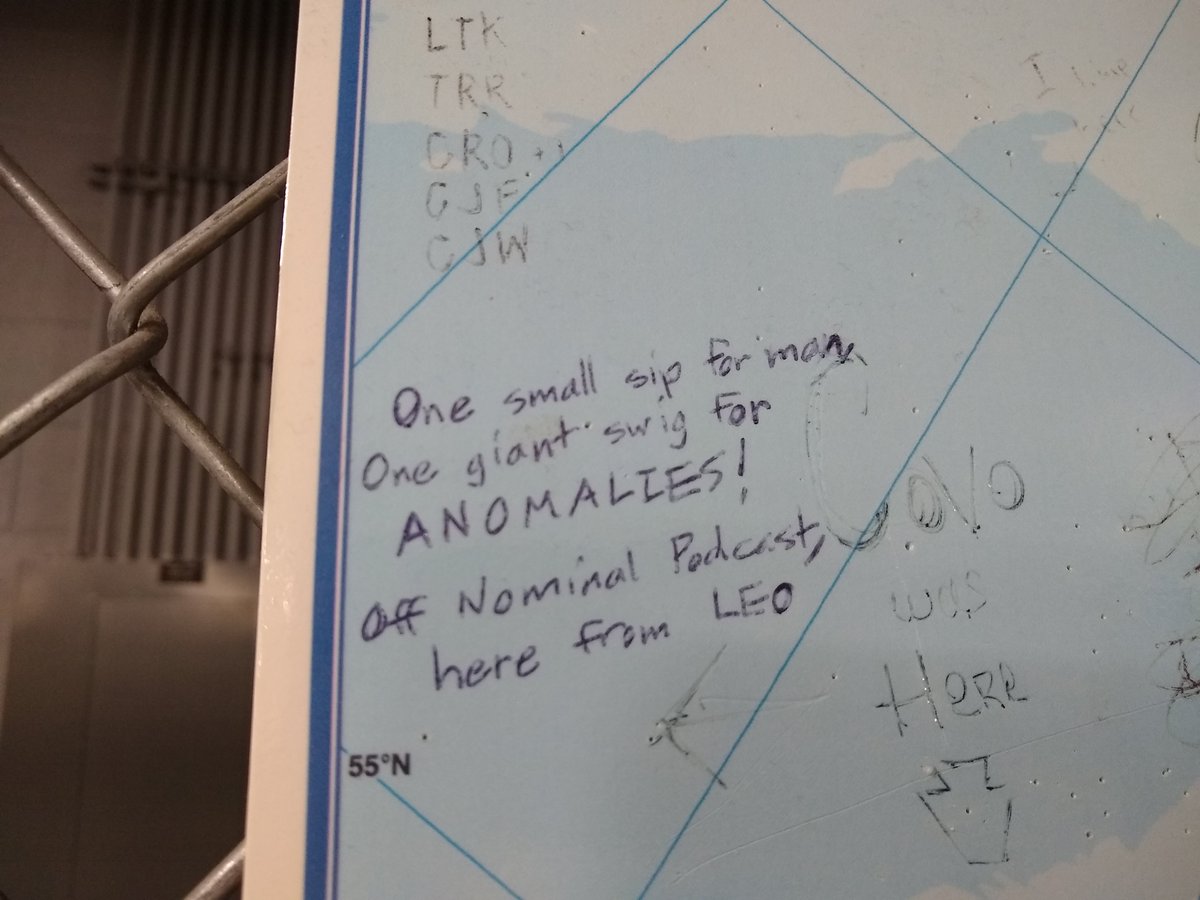 LTK
TRR
CRO
CJF
CJW
I
One small sip for man,
One giant swig for
ANOMALIES!
Off Nominal Podcast,
here from LEO
was
HeRR
55°N